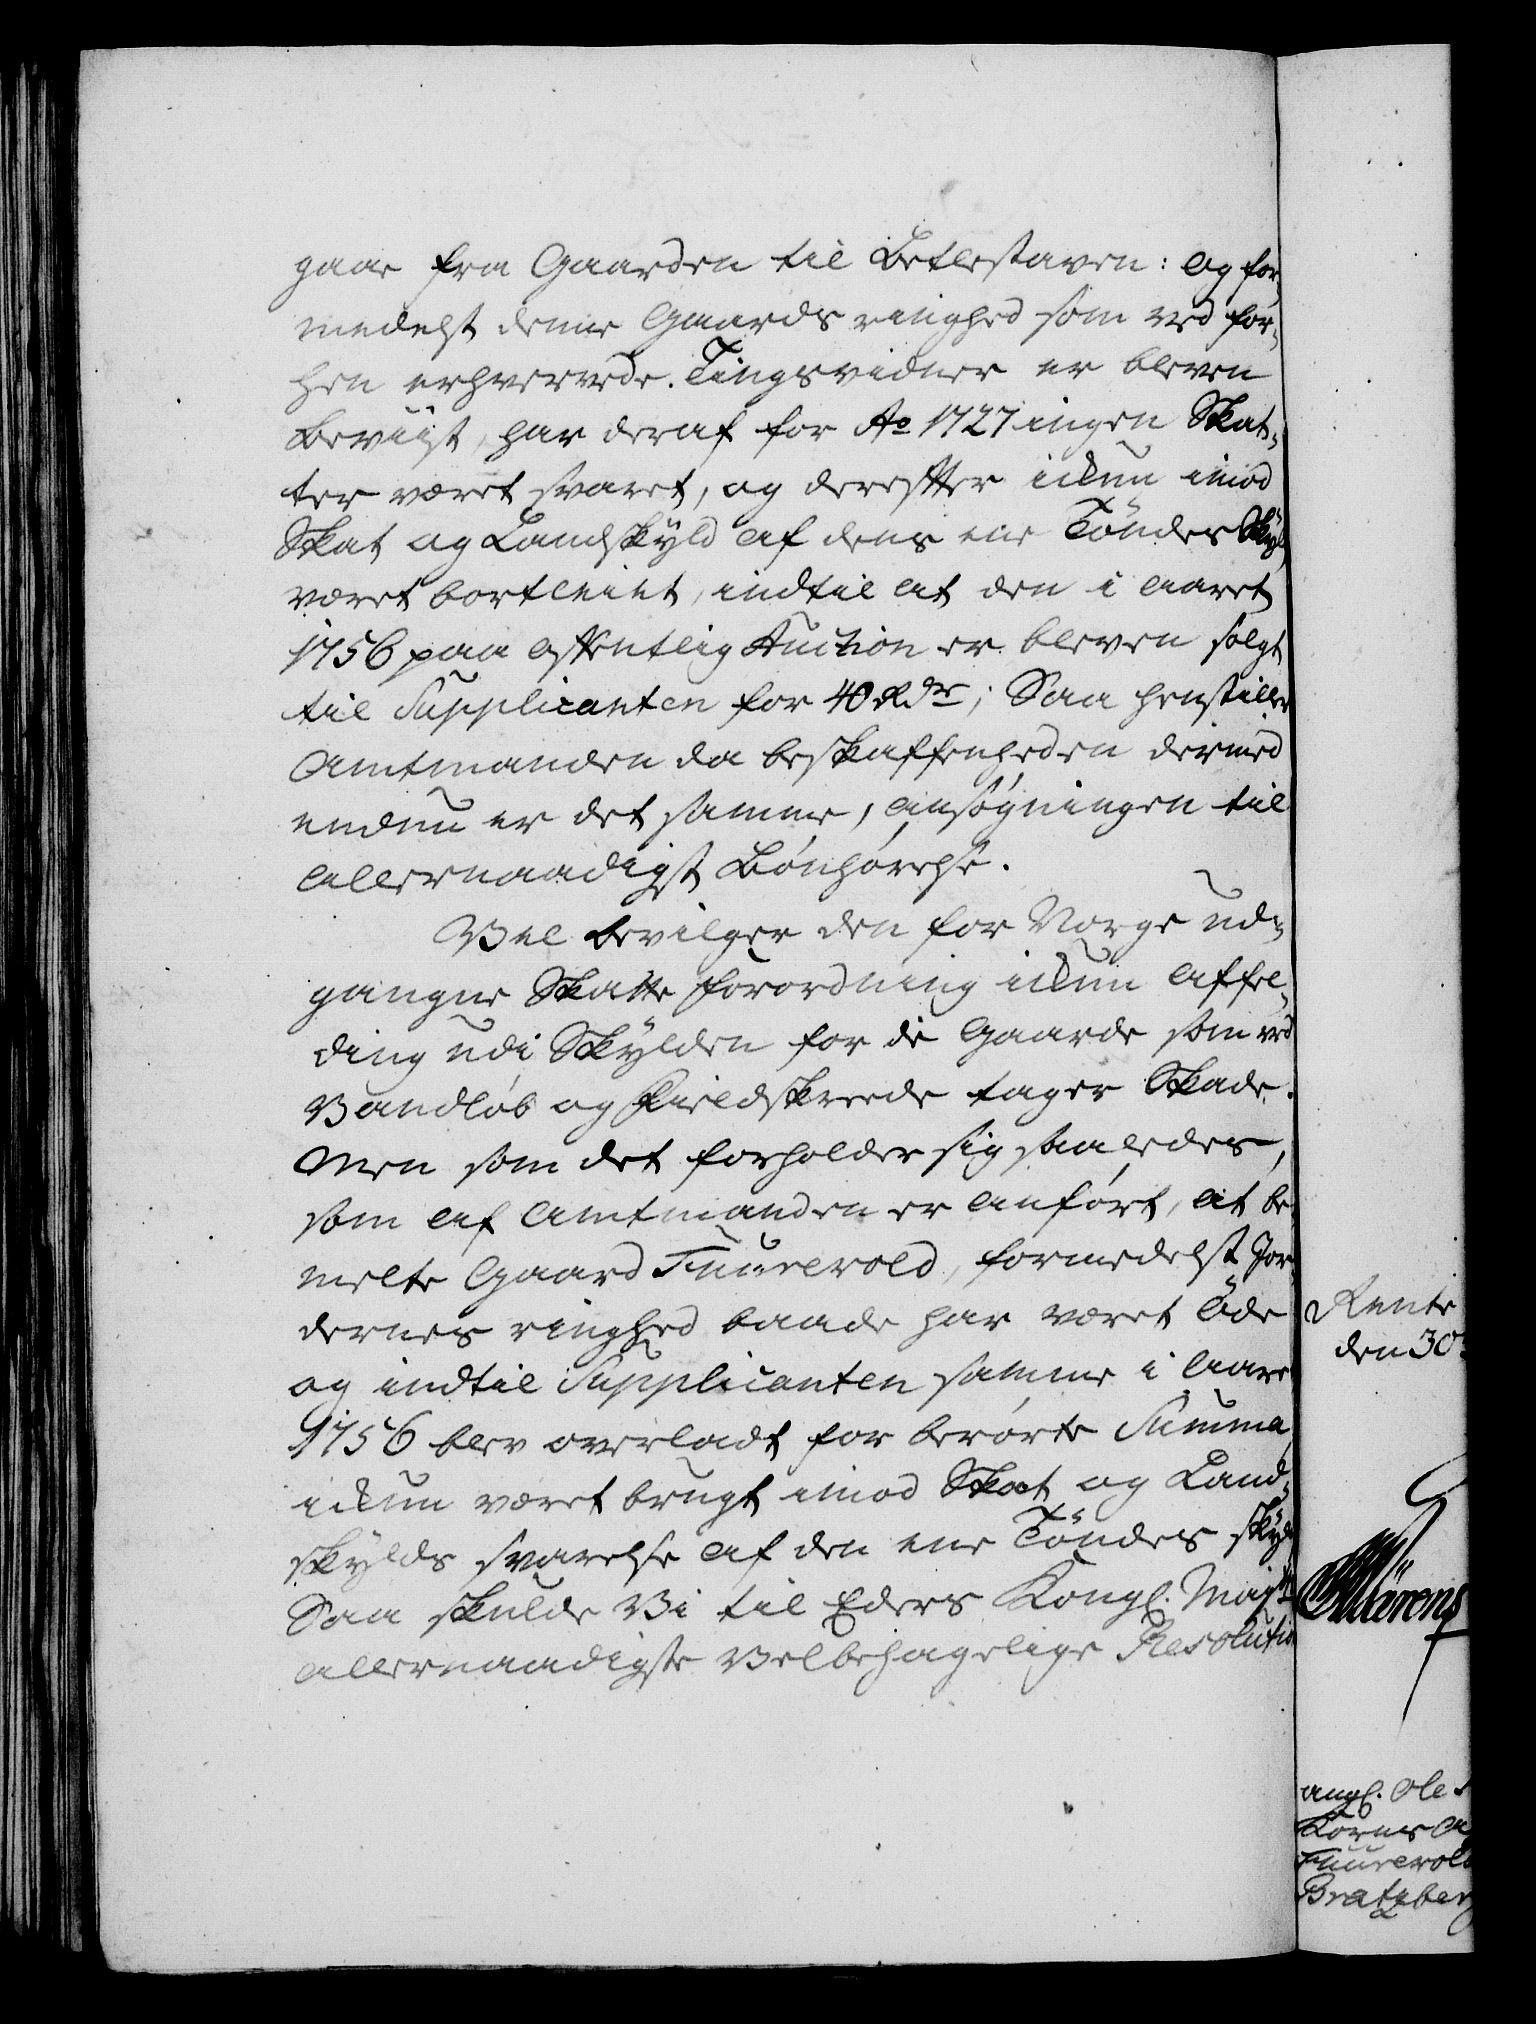 gaae fra Gaarden til Betlestaven: Og for-
medelst denne Gaards ringhed som ved for-
hen erhvervede Tingsvidner er bleven
Beviist, har deraf for Ao 1727 ingen Skat-
ter været svaret, og derefter ickun imod
Skat og Landskyld af dens ene Tönder Skyld
været bortleiet, indtil at den i Aaret
1756 paa offentlig Auction er bleven solgt
til Supplicanten for 40 Rdr; Saa henstiller
Amtmanden da beskaffenheden dermed
endnu er det samme, ansøgningen til
allernaadigst Bönhörelse.
Vel bevilger den for Norge ud-
gangne Skatte forordning ickun Affel-
ding udi Skylden for de Gaarde som ved
Vandløb og Fieldskreede tager Skade.
Men som det forholder sig saaledes,
som af Amtmanden er anført, at be-
melte Gaard Fuurevold, formedelst Jor-
dernes ringhed baade har været Öde
og indtil Supplicanten samme i Aare
1756 blev overladt for berørte Summa
ickun været brugt imod Skat og Land-
skylds svarelse af den ene Tönder skyld
Saa skulde Vi til Eders Kongl. Mayts
allernaadigste Velbehagelige Resolution
Rente
den 30
ang. Ole
Fuurevold
Bratzberg